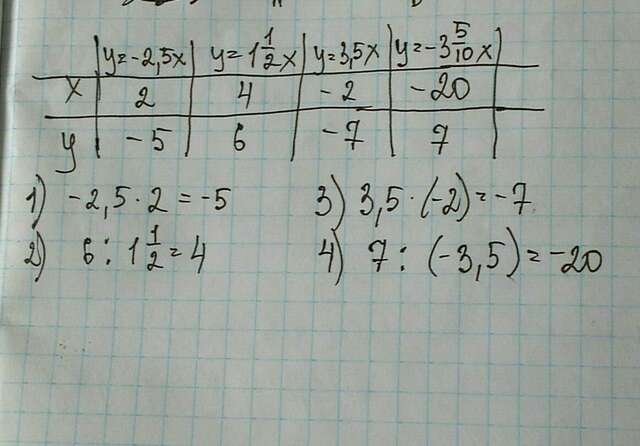 y=-2,5x y=1 1/2 x y=3,5x y=-3 5/10 x
x 2 4 -2 -20
y -5 6 -7 7
1) -2,5 · 2 = -5 3) 3,5 · (-2) = -7
2) 6 : 1 1/2 = 4 4) 7 : (-3,5) = -20